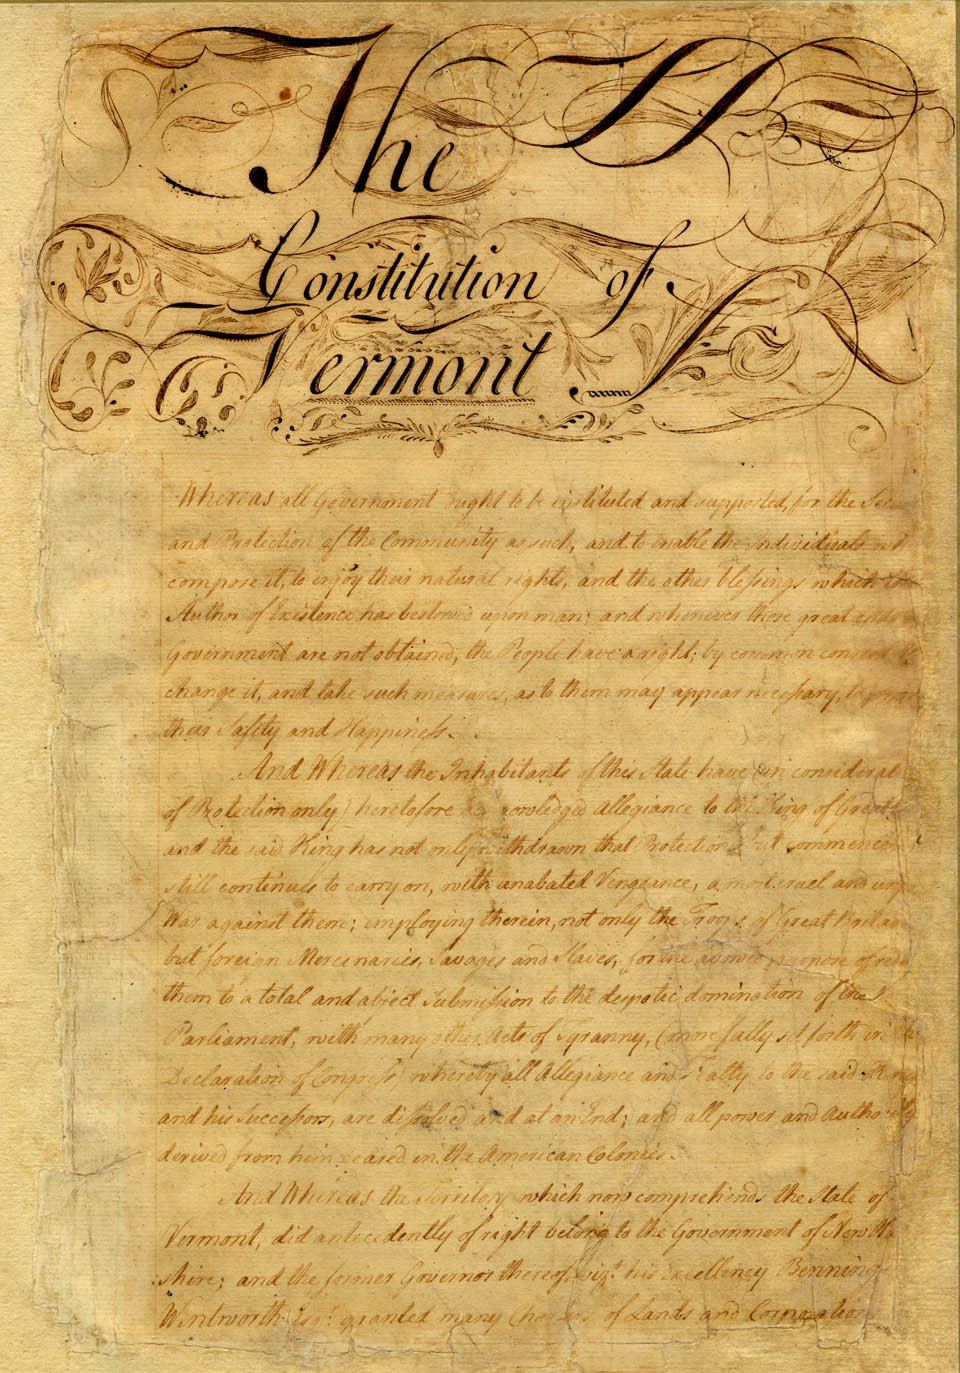 The
Constitution of
Vermont
Whereas all Government ought to be instituted and supported, for the
and Protection of the Community as such, and to enable the Individuals
compose it, to enjoy their natural rights, and the other blessings which
Author of Existence has bestowed upon man; and whenever these great ends
Government are not obtained, the People have a right, by common consent
change it, and take such measures, as to them may appear necessary, to
their Safety and Happiness.
And Whereas the Inhabitants of this State have (in
of Protection only) heretofore acknowledged allegiance to the King of Great
and the said King has not only withdrawn that Protection, but commenced
still continues to carry on, with unabated Vengeance, a most cruel and
War against them; employing therein, not only the Troops of Great Britain
but foreign Mercenaries, Savages and Slaves, for the avowed purpose of
them to a total and abject Submission to the despotic domination of the
Parliament, with many other Acts of Tyranny, (more fully set forth in the
Declaration of Congress) whereby all Allegiance and Fealty to the said King
and his Successors, are dissolved and at an End; and all power and Authority
derived from him ceased in the American Colonies.
And Whereas the Territory which now comprehends the State of
Vermont, did antecedently of right belong to the Government of New
shire; and the former Governor thereof, viz.t his Excellency
Wentworth Esq.r granted many Charters of Lands and